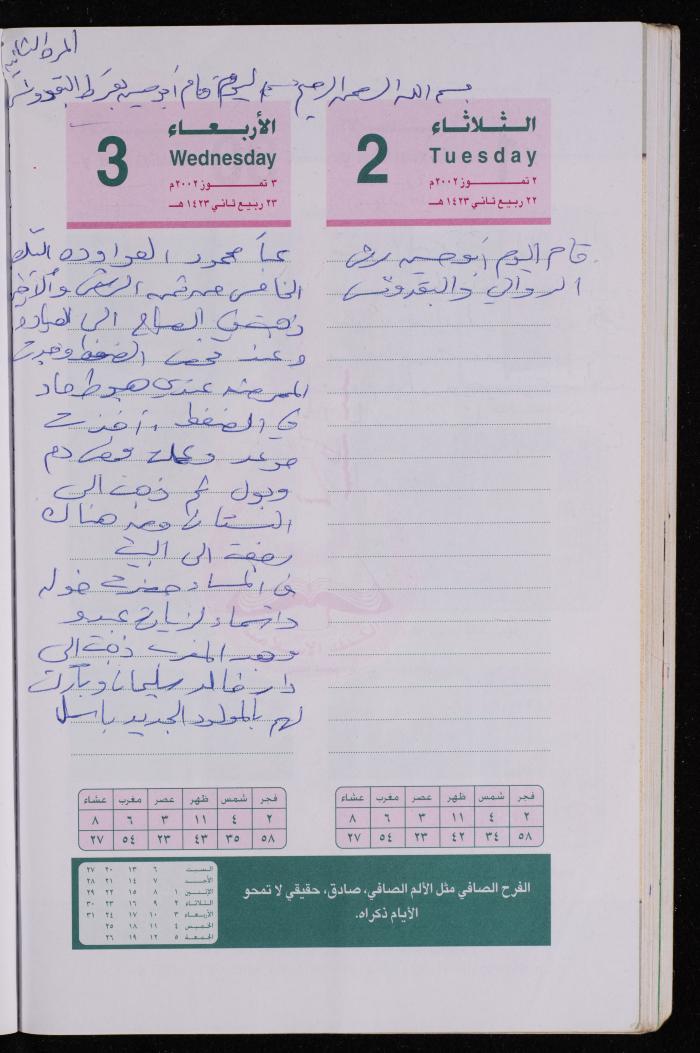 المرة الثانية
بسم الله الرحمن الرحيم اليوم قام أبو حسين
الثلاثاء
2
Tuesday
٢ تمـــوز ٢٠٠٢م
٢٢ ربيع ثاني ١٤٢٣ هـ
قام اليوم أبو حسين برش
الدوالي والبقدونس
الأربعاء
3
Wednesday
٣ تمـــوز ٢٠٠٢م
٢٣ ربيع ثاني ١٤٢٣ هـ
عبأ محمود العواوده
الخامس من
الصباح الى العيادة
وعند فحص الضغط وجدت
الممرضه عندي هبوط حاد
في الضغط، أخذت
موعد وعملت فحص دم
وبول ثم ذهبت الى
البستان ومن هناك
رجعت الى البيت
في المساء حضرت خوله
واسماء لزيارة
وبعد المغرب ذهبت الى
دار خالد سليمان وباركت
لهم بالمولود الجديد باسل
فجر شمس ظهر عصر مغرب عشاء
٢ ٤ ١١ ٣ ٦ ٨
٥٨ ٣٤ ٤٢ ٢٣ ٥٤ ٢٧
فجر شمس ظهر عصر مغرب عشاء
٢ ٤ ١١ ٣ ٦ ٨
٥٨ ٣٥ ٤٣ ٢٣ ٥٤ ٢٧
الفرح الصافي مثل الألم الصافي، صادق، حقيقي لا تمحو
الأيام ذكراه.
السبت ٦ ١٣ ٢٠ ٢٧
الأحد ٧ ١٤ ٢١ ٢٨
الإثنين ١ ٨ ١٥ ٢٢ ٢٩
الثلاثاء ٢ ٩ ١٦ ٢٣ ٣٠
الأربعاء ٣ ١٠ ١٧ ٢٤ ٣١
الخميس ٤ ١١ ١٨ ٢٥
الجمعة ٥ ١٢ ١٩ ٢٦